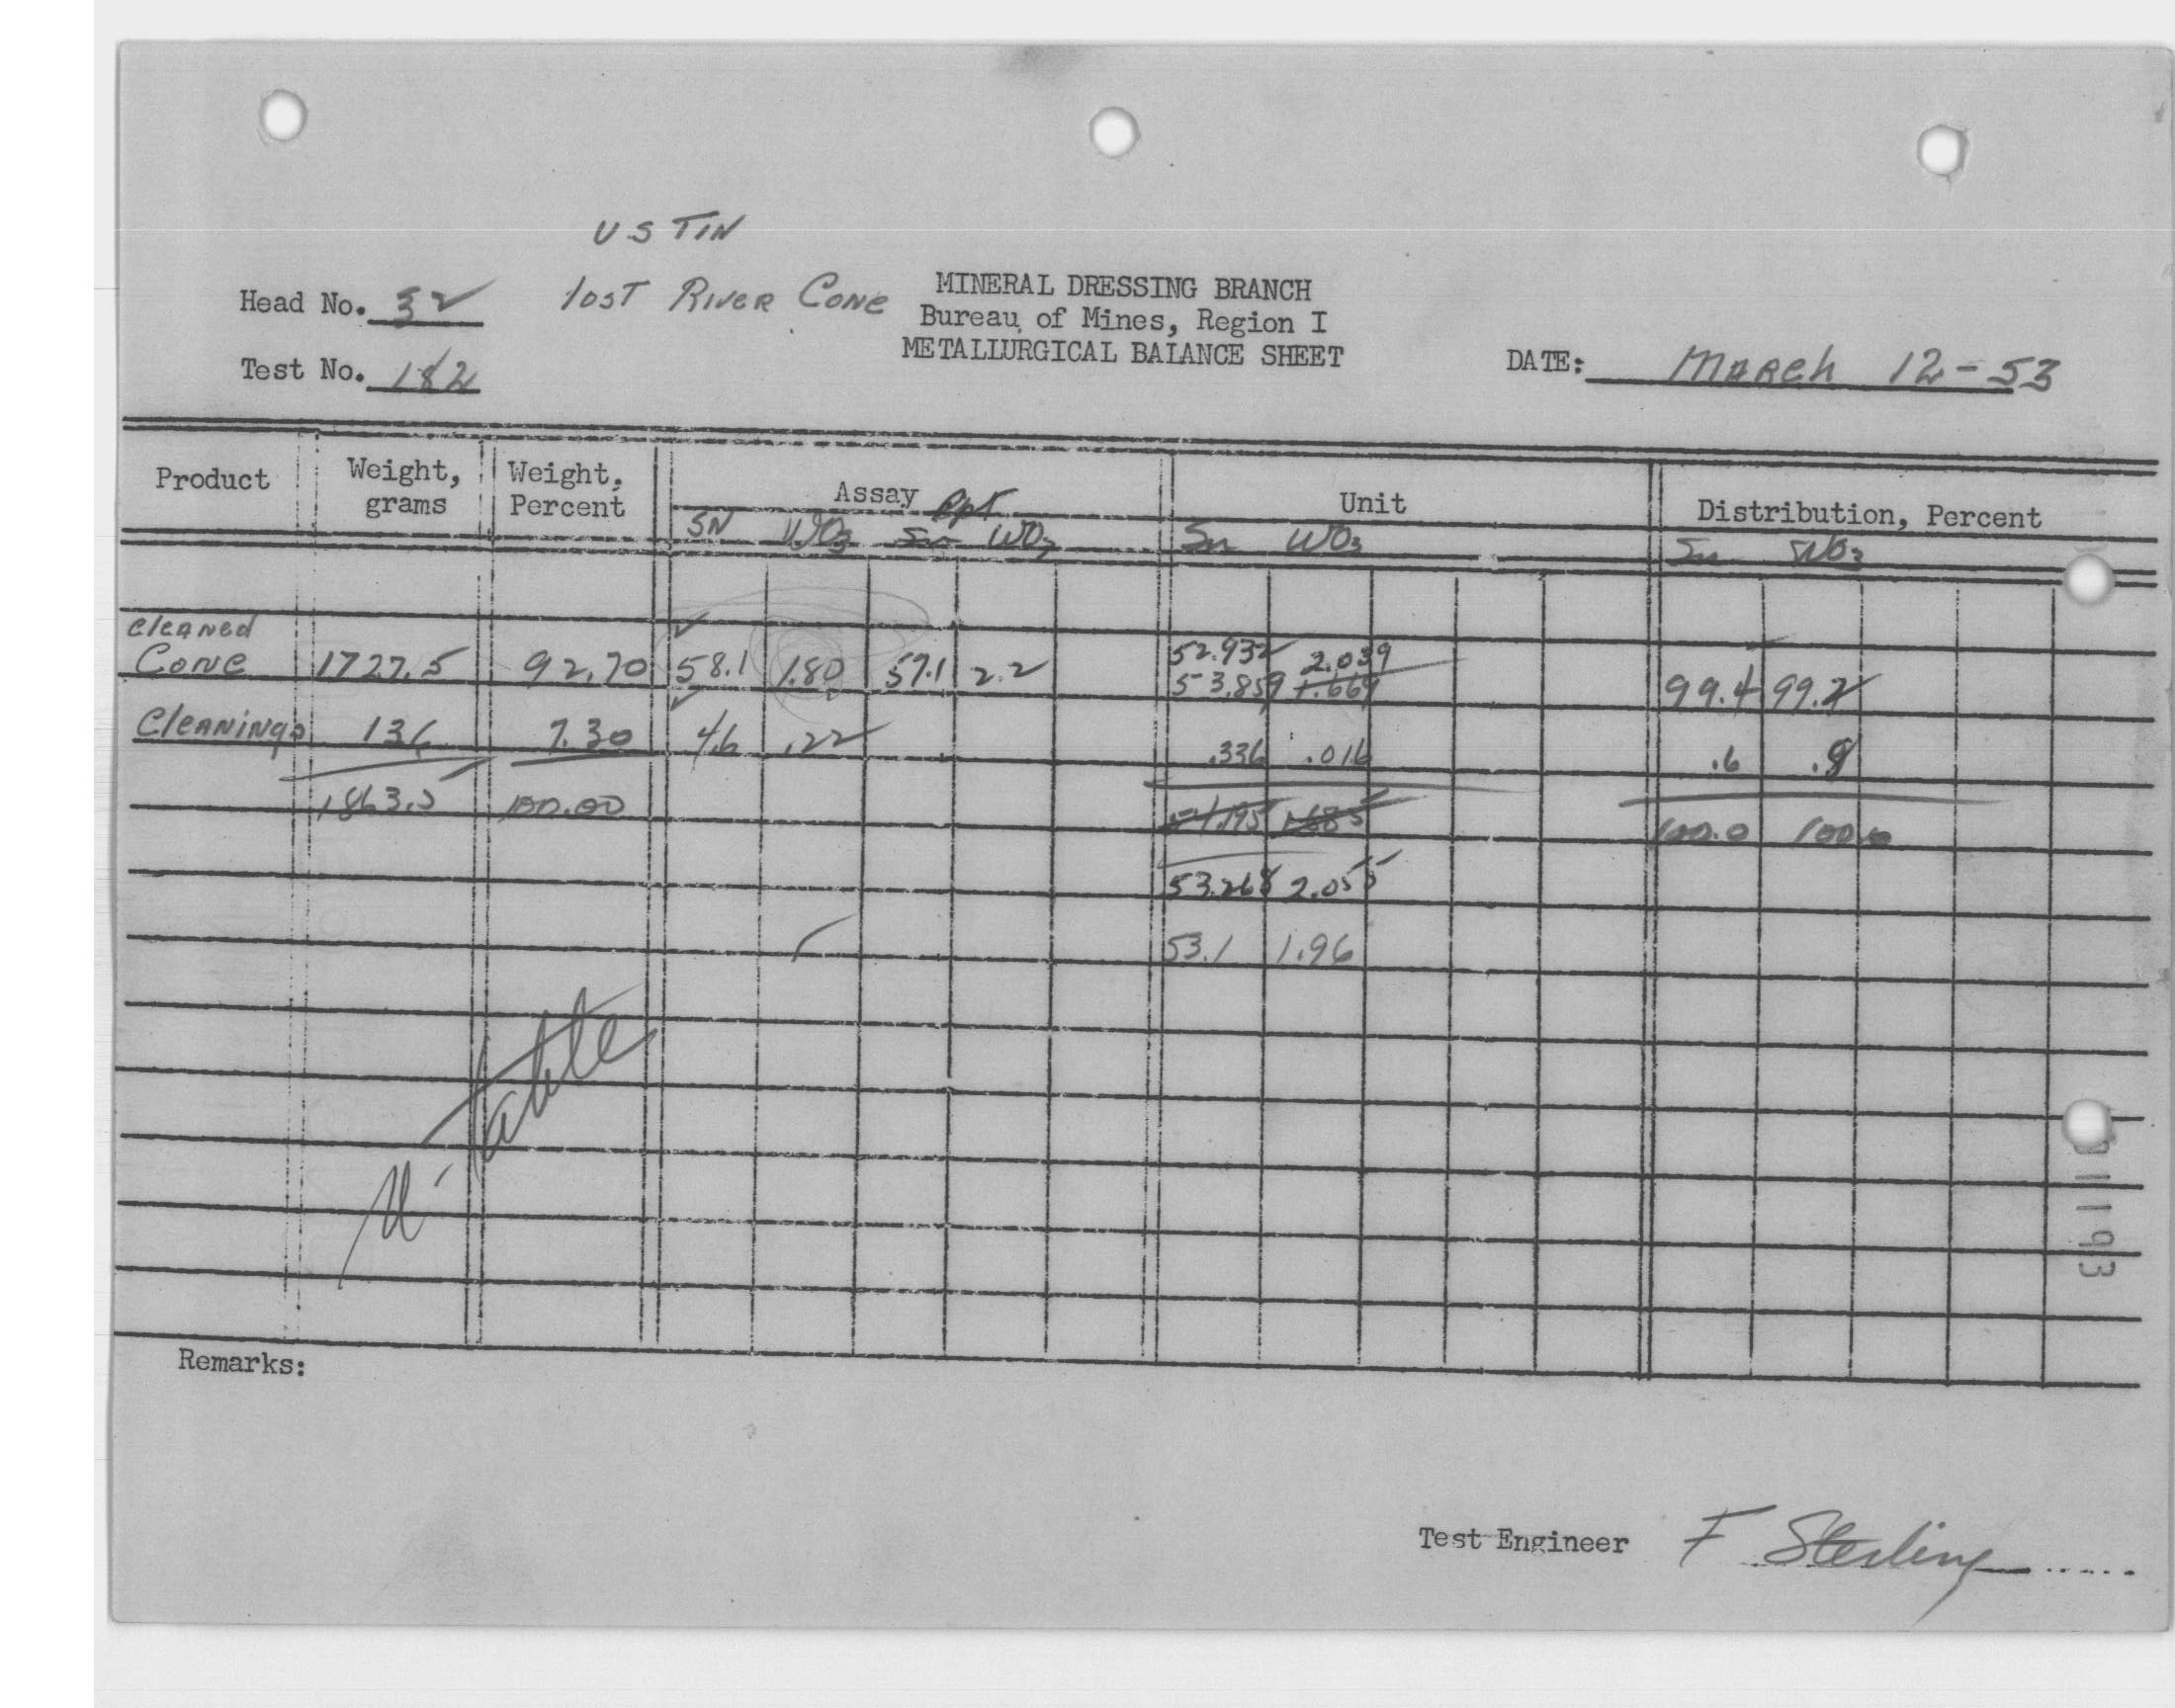 US TIN
Head No. 32 lost River Conc MINERAL DRESSING BRANCH
Bureau of Mines, Region I
Test No. 182 METALLURGICAL BALANCE SHEET DATE: March 12-53
Product Weight, grams Weight, Percent Assay Rpt Unit Distribution, Percent
SN WO3 Sn WO3 Sn WO3 Sn WO3
cleaned
Conc 1727.5 92.70 58.1 1.80 57.1 2.2 52.932 2.039 53.859 1.669 99.4 99.2
Cleanings 136 7.30 4.6 .22 .336 .016 .6 .8
1863.5 100.00 54.195 1.685 100.0 100.0
53.268 2.055
53.1 1.96
Table
Remarks:
Test Engineer F Sterling
1193